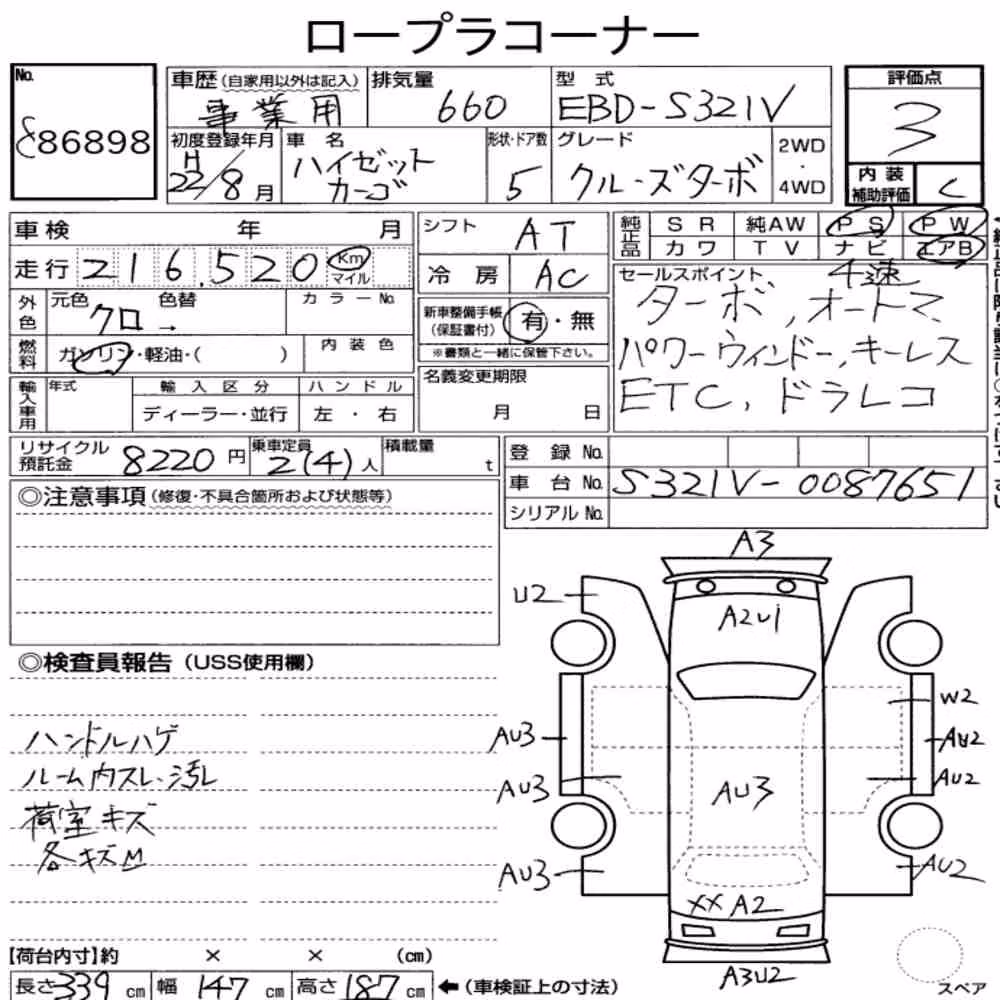 ロープラコーナー
No. 86898
車歴(自家用以外は記入) 事業用
排気量 660
型式 EBD-S321V
評価点 3
内装補助評価 C
初度登録年月 H 22/8月
車名 ハイゼットカーゴ
形状・ドア数 5
グレード クルーズターボ
2WD・4WD
車検 年 月
走行 216,520 Km マイル
シフト AT
冷房 AC
純正品 SR 純AW PS PW
カワ TV ナビ エアB
外色 元色 クロ → 色替 カラーNo.
燃料 ガソリン・軽油・( ) 内装色
新車整備手帳(保証書付) 有・無
※書類と一緒に保管下さい。
セールスポイント 4速
ターボ,オートマ
パワーウィンドー,キーレス
ETC,ドラレコ
輸入車用 年式 輸入区分 ハンドル
ディーラー・並行 左・右
名義変更期限
月 日
リサイクル預託金 8220円
乗車定員 2(4)人
積載量 t
登録No.
車台No. S321V-0087651
シリアルNo.
◎注意事項(修復・不具合箇所および状態等)
◎検査員報告(USS使用欄)
ハンドルハゲ
ルーム内スレ・汚レ
荷室キズ
各キズM
A3
U2
A2U1
W2
AU3
AU2
AU3
AU2
AU3
AU3
AU2
XX A2
A3U2
スペア
【荷台内寸】約 × × (cm)
長さ339cm 幅147cm 高さ187cm ←(車検証上の寸法)